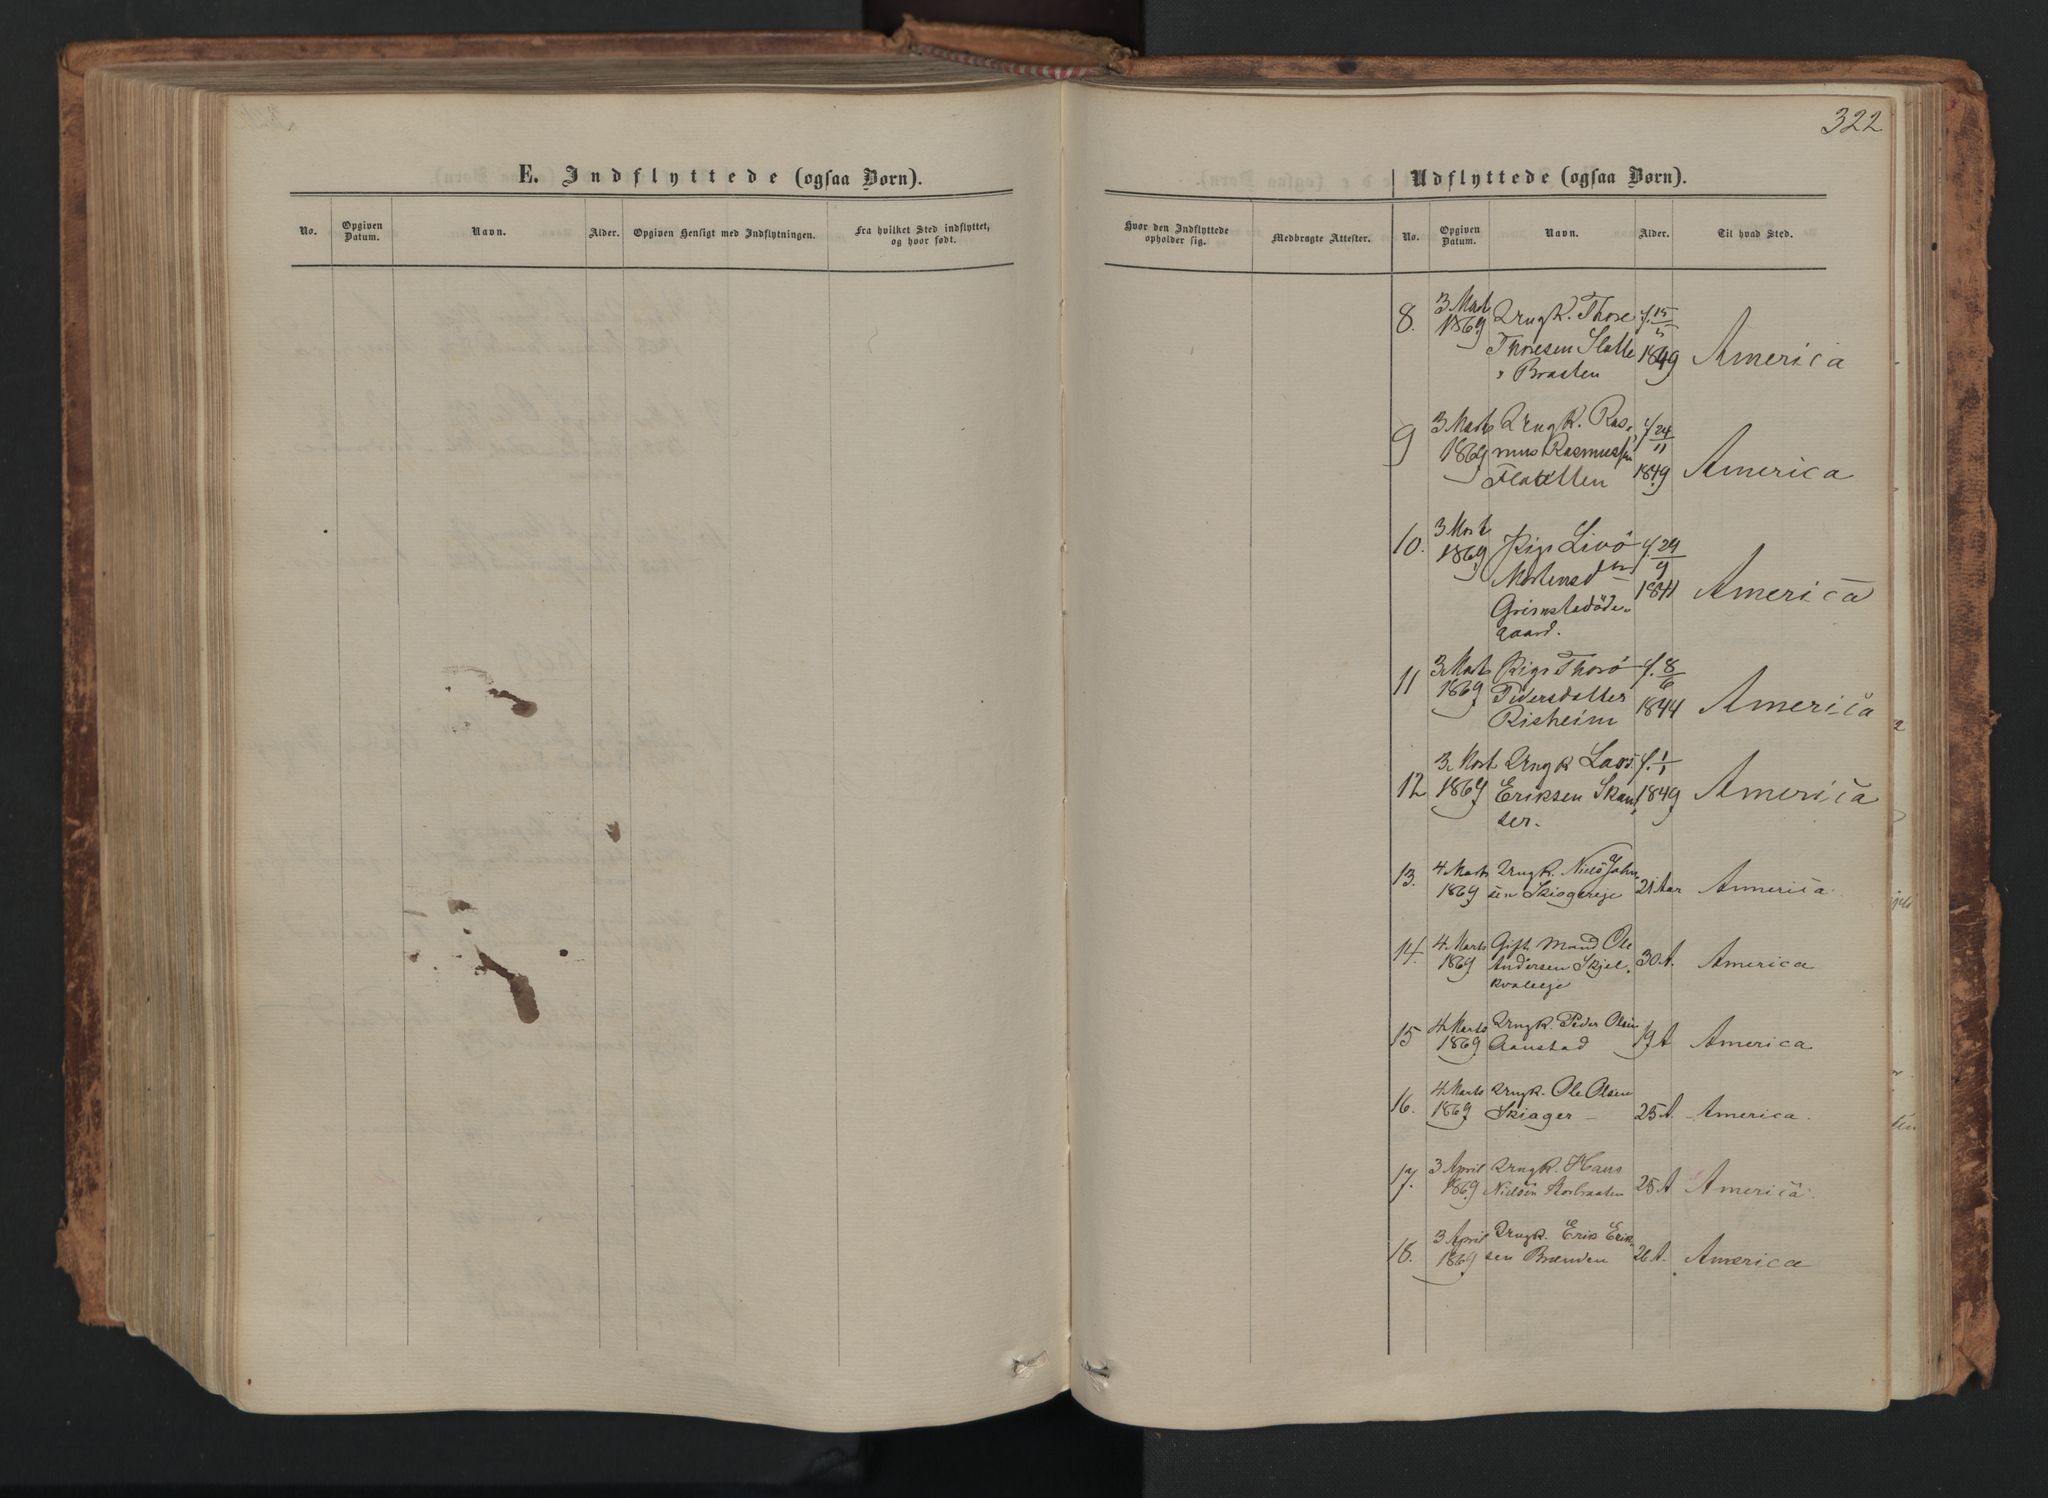 322
E. Indflyttede (ogsaa Børn).
No.
Opgiven
Datum.
Navn.
Alder.
Opgiven Hensigt med Indflytningen.
Fra hvilket Sted indflyttet,
og hvor født.
Udflyttede (ogsaa Børn).
Hvor den Indflyttede
opholder sig.
Medbragte Attester.
No.
Opgiven
Datum.
Navn.
Alder.
Til hvad Sted.
8. 3 Marts 1869 Ungk. Thore f. 15/5
Thoresen Slette 1849 America
Braaten
9 3 Marts Ungk. Ras- f. 24/11
1869 mus Rasmussen
Flatten 1849 America
10. 3 Marts 1869 Pige Livö f. 29/9
Mortensdtr 1841 America
Grimstadöde-
gaard.
11 3 Marts Pige Thorö f. 8/6
1869 Pedersdatter
Risheim 1844 America
12 3 Marts Ungk Lars f. 1/1
1869 Eriksen Skan- 1849 America
ser.
13. 4 Marts Ungk. Niels John-
1869 sen 21 Aar America
14. 4 Marts Gift Mand Ole
1869 Andersen Skjel- 30 A. America
kvaleeje
15 4 Marts Ungk. Peder Olsen
1869 Aanstad 19 A America
16. 4 Marts Ungk. Ole Olsen
1869 Skiager 25 A. America.
17. 3 April Ungk. Hans
1869 Nielsen Storbraaten 25 A America
18. 3 April Ungk. Erik Erik-
1869 sen Brænden 26 A. America